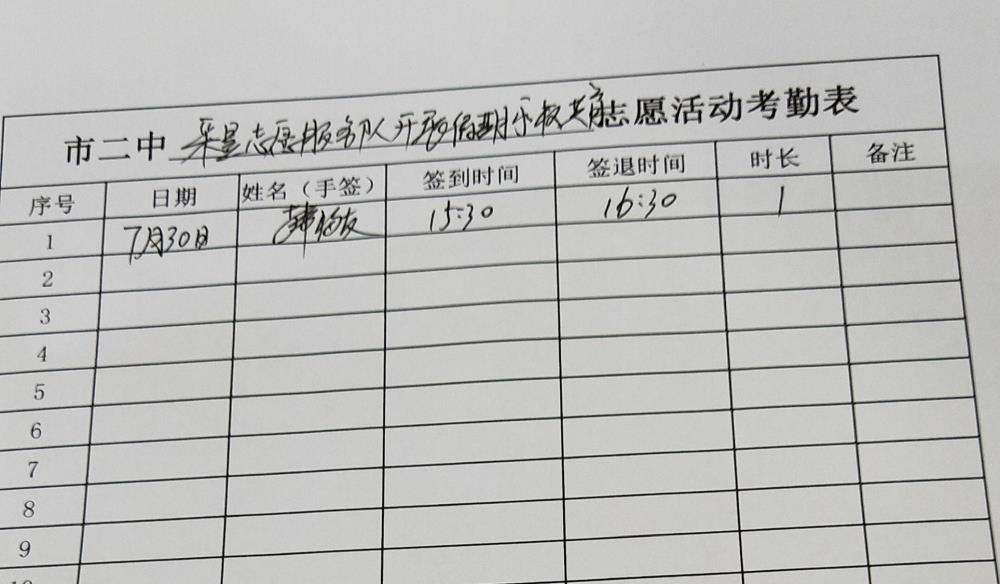 市二中 采星志愿服务队开展假期乐板共育志愿活动考勤表
序号 日期 姓名（手签） 签到时间 签退时间 时长 备注
1 7月30日 韩 友 15:30 16:30 1
2
3
4
5
6
7
8
9
10